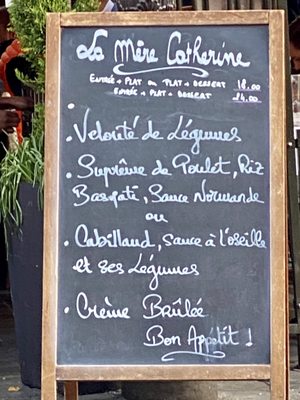 La Mère Catherine
Entrée + Plat ou Plat + Dessert 18.00
Entrée + Plat + Dessert 24.00
• Velouté de Légumes
• Suprême de Poulet, Riz
Basmati, Sauce Normande
ou
• Cabillaud, sauce à l'oseille
et ses Légumes
• Crème Brûlée
Bon Appétit !